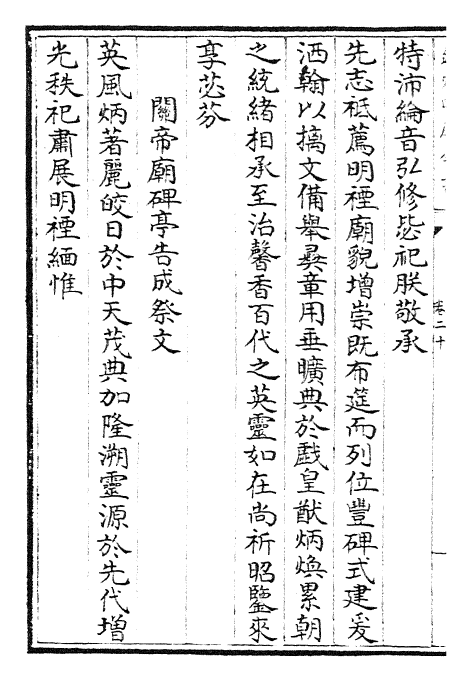 特沛綸音弘修毖祀朕敬承
先志祗薦明禋廟貌增崇既布筵而列位豐碑式建爰
洒翰以摛文備舉彛章用垂曠典於戲皇猷炳煥累朝
之統緒相承至治馨香百代之英靈如在尚祈昭鑒來
享苾芬
關帝廟碑亭告成祭文
英風炳著麗皎日於中天茂典加隆溯靈源於先代增
光秩祀肅展明禋緬惟
卷二十